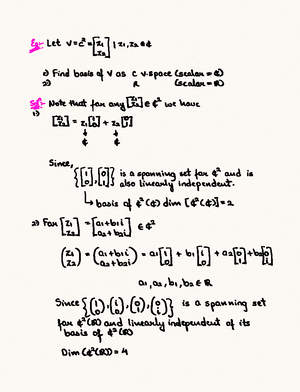 Ex:- Let V=ℂ²=[z₁ z₂] | z₁,z₂ ∈ ℂ
1) Find basis of V as ℂ v-space (scalar = ℂ)
2) ℝ (scalar = ℝ)
Sol:- Note that for any [z₁ z₂] ∈ ℂ² we have
1)
[z₁ z₂] = z₁[1 0] + z₂[0 1]
↓ ↓
ℂ ℂ
Since,
{[1 0],[0 1]} is a spanning set for ℂ² and is
also linearly independent.
↳ basis of ℂ²(ℂ) dim [ℂ²(ℂ)] = 2
2) For [z₁ z₂] = [a₁+b₁i a₂+b₂i] ∈ ℂ²
(z₁ z₂) = (a₁+b₁i a₂+b₂i) = a₁[1 0] + b₁[i 0] + a₂[0 1] + b₂[0 i]
a₁,a₂,b₁,b₂ ∈ ℝ
Since {(1 0),(i 0),(0 1),(0 i)} is a spanning set
for ℂ²(ℝ) and linearly independent of its
basis of ℂ²(ℝ)
Dim (ℂ²(ℝ)) = 4